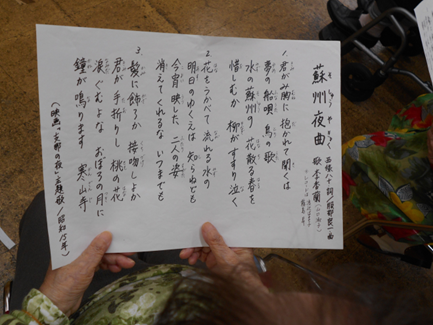 蘇州夜曲
西條八十 詞/服部良一 曲
歌 李香蘭
1. 君がみ胸に 抱かれて聞くは
夢の船唄 鳥の歌
水の蘇州の 花散る春を
惜しむか 柳がすすり泣く
2. 花をうかべて 流れる水の
明日のゆくえは 知らねども
今宵映した 二人の姿
消えてくれるな いつまでも
3. 髪に飾ろか 接吻しよか
君が手折りし 桃の花
涙ぐむよな おぼろの月に
鐘が鳴ります 寒山寺
(映画「支那の夜」主題歌/昭和15年)